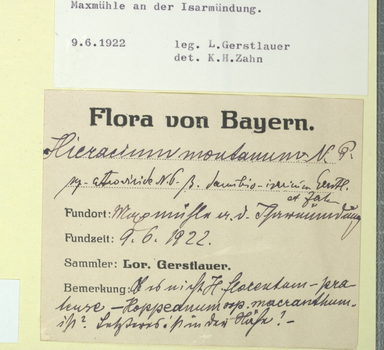 Maxmühle an der Isarmündung.
9.6.1922 leg. L.Gerstlauer
det. K.H.Zahn
Flora von Bayern.
Hieracium montanum N. P.
Gerstl.
et Zahn
Fundort: Maxmühle a. d. Isarmündung
Fundzeit: 9. 6. 1922.
Sammler: Lor. Gerstlauer.
Bemerkung: Ob es nicht H. florentum - pra-
- Hoppeanum ssp. macranthum -
ist? Letzteres ist in der Nähe! -